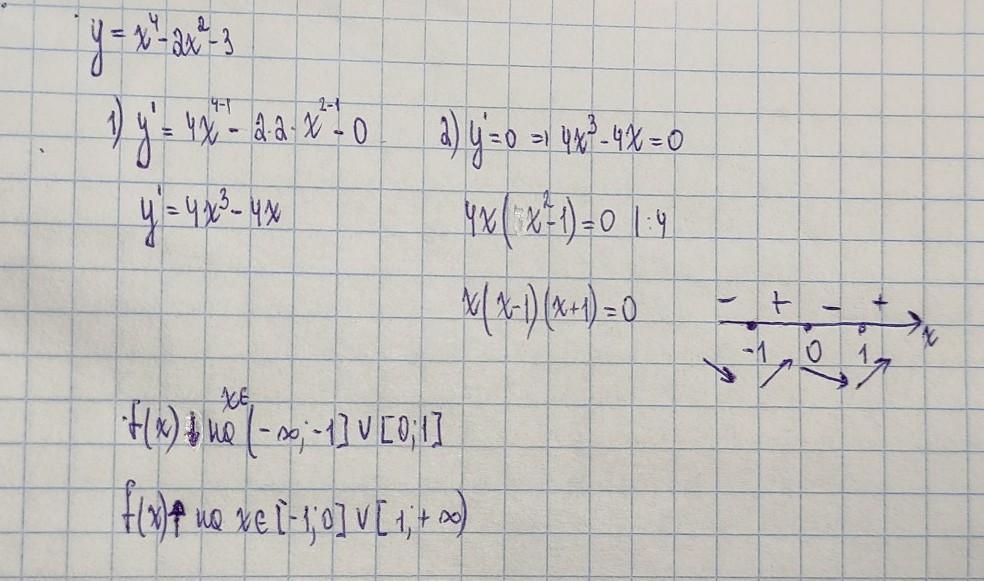 y = x⁴ - 2x² - 3
1) y' = 4x⁴⁻¹ - 2·2·x²⁻¹ - 0
2) y' = 0 ⇒ 4x³ - 4x = 0
y' = 4x³ - 4x
4x(x² - 1) = 0 | : 4
x(x-1)(x+1) = 0
- + - +
-1 0 1 x
↘ ↗ ↘ ↗
f(x) ↓ на x∈ (-∞; -1] ∨ [0; 1]
f(x) ↑ на x∈ [-1; 0] ∨ [1; +∞)